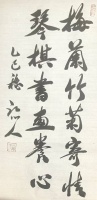 梅蘭竹菊寄情
琴棋書畫養心
乙巳穐